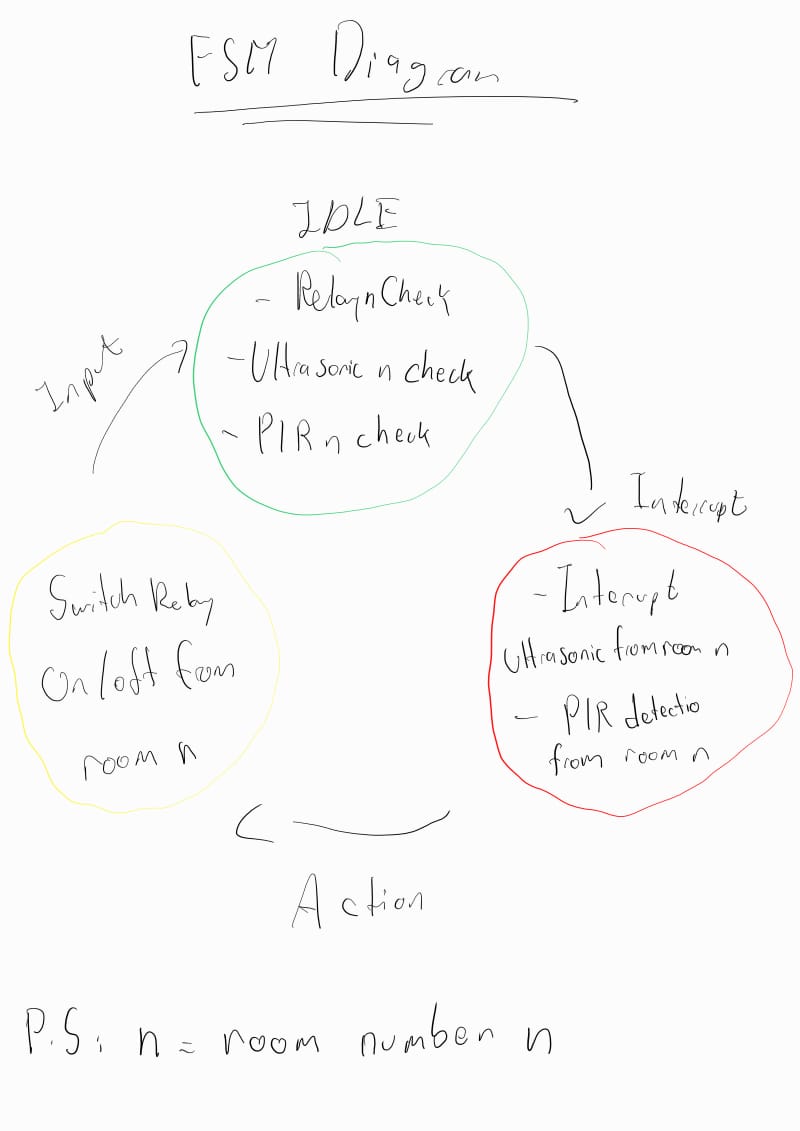 FSM Diagram
IDLE
- Relay n Check
- Ultrasonic n check
- PIR n check
Input
Interrupt
- Interupt
Ultrasonic from room n
- PIR detectio
from room n
Switch Relay
On/off from
room n
Action
P.S: n = room number n